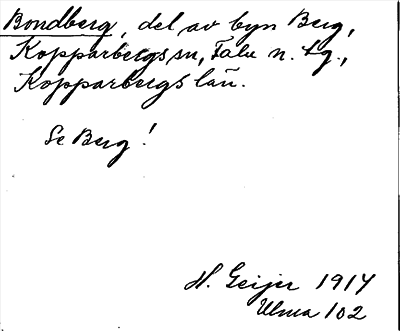 Bondberg, del av byn Berg,
Kopparbergs sn, Falu n. tg.,
Kopparbergs län.
Se Berg!
H. Geijer 1917
Ulma 102